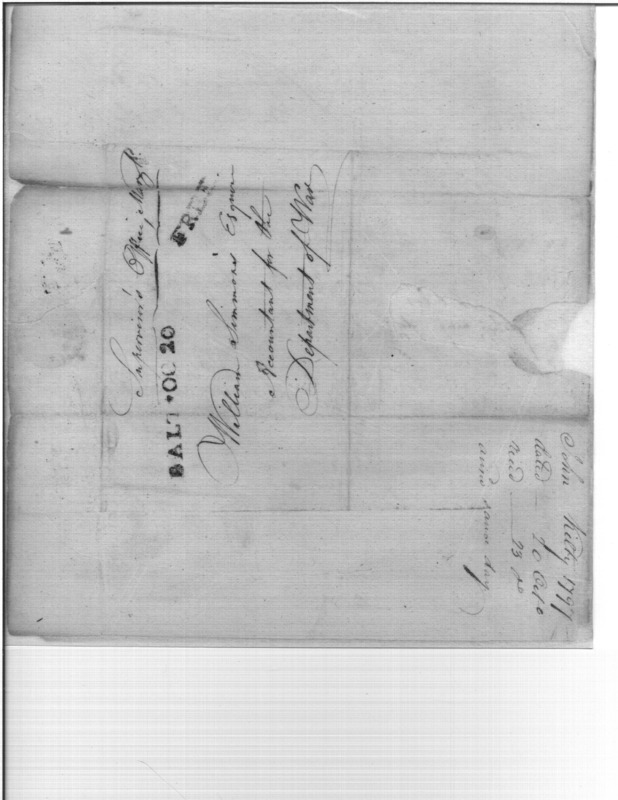 Supervisor's Office, Maryld.
FREE
BALT * OC 20
William Simmons Esquire
Accountant for the
Department of War
John Kilty 1797
dated 20 Oct
Recd 23 do
same day